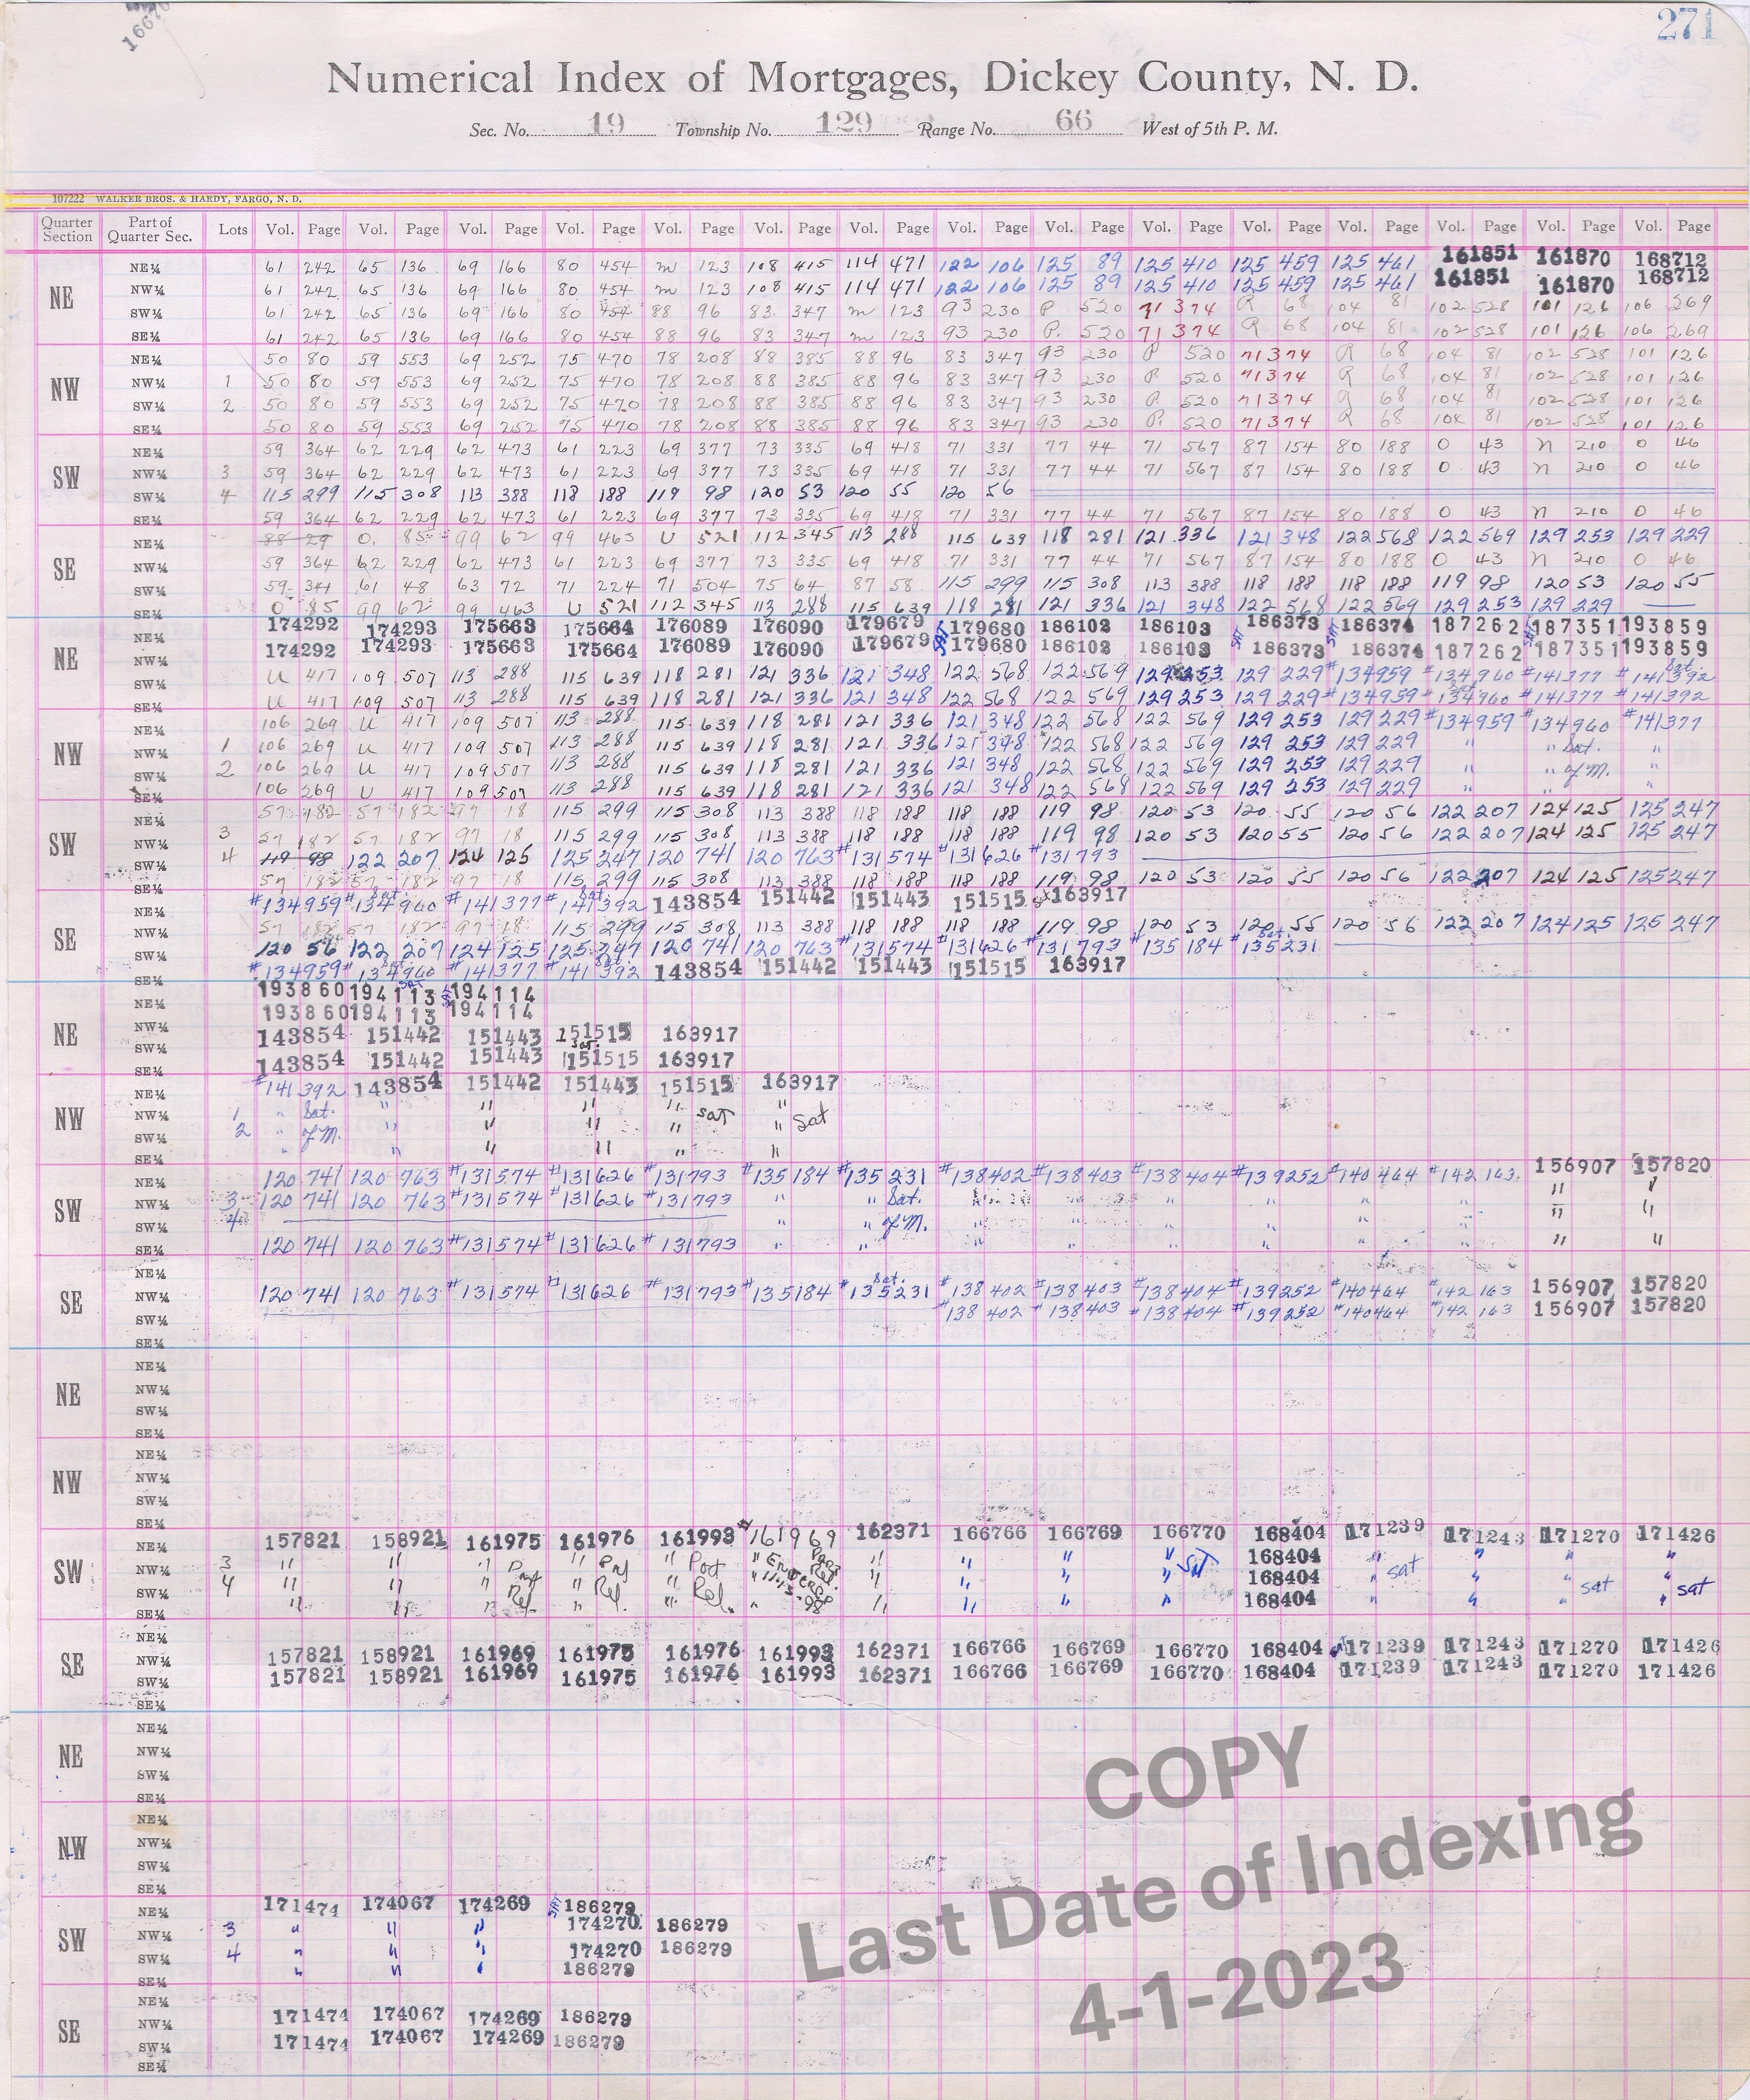 1667
271
Numerical Index of Mortgages, Dickey County, N. D.
Sec. No. 19 Township No. 129 Range No. 66 West of 5th P. M.
107222 WALKER BROS. & HARDY, FARGO, N. D.
Quarter Section Part of Quarter Sec. Lots Vol. Page Vol. Page Vol. Page Vol. Page Vol. Page Vol. Page Vol. Page Vol. Page Vol. Page Vol. Page Vol. Page Vol. Page Vol. Page Vol. Page Vol. Page
NE
NE¼ 61 242 65 136 69 166 80 454 m 123 108 415 114 471 122 106 125 89 125 410 125 459 125 461 161851 161870 168712
NW¼ 61 242 65 136 69 166 80 454 m 123 108 415 114 471 122 106 125 89 125 410 125 459 125 461 161851 161870 168712
SW¼ 61 242 65 136 69 166 80 454 88 96 83 347 m 123 93 230 P 520 71 374 R 68 104 81 102 528 101 126 106 269
SE¼ 61 242 65 136 69 166 80 454 88 96 83 347 m 123 93 230 P. 520 71 374 R 68 104 81 102 528 101 126 106 269
NW
NE¼ 50 80 59 553 69 252 75 470 78 208 88 385 88 96 83 347 93 230 P 520 71 374 R 68 104 81 102 528 101 126
NW¼ 1 50 80 59 553 69 252 75 470 78 208 88 385 88 96 83 347 93 230 P. 520 71 374 R 68 104 81 102 528 101 126
SW¼ 2 50 80 59 553 69 252 75 470 78 208 88 385 88 96 83 347 93 230 P. 520 71 374 R 68 104 81 102 528 101 126
SE¼ 50 80 59 553 69 252 75 470 78 208 88 385 88 96 83 347 93 230 P. 520 71 374 R 68 104 81 102 528 101 126
SW
NE¼ 59 364 62 229 62 473 61 223 69 377 73 335 69 418 71 331 77 44 71 567 87 154 80 188 O 43 n 210 O 46
NW¼ 3 59 364 62 229 62 473 61 223 69 377 73 335 69 418 71 331 77 44 71 567 87 154 80 188 O 43 n 210 O 46
SW¼ 4 115 299 115 308 113 388 118 188 119 98 120 53 120 55 120 56
SE¼ 59 364 62 229 62 473 61 223 69 377 73 335 69 418 71 331 77 44 71 567 87 154 80 188 O 43 n 210 O 46
SE
NE¼ 88 29 O. 85 99 62 99 463 U 521 112 345 113 288 115 639 118 281 121 336 121 348 122 568 122 569 129 253 129 229
NW¼ 59 364 62 229 62 473 61 223 69 377 73 335 69 418 71 331 77 44 71 567 87 154 80 188 O 43 n 210 O 46
SW¼ 59 341 61 48 63 72 71 224 71 504 75 64 87 58 115 299 115 308 113 388 118 188 118 188 119 98 120 53 120 55
SE¼ O 85 99 62 99 463 U 521 112 345 113 288 115 639 118 281 121 336 121 348 122 568 122 569 129 253 129 229
NE
NE¼ 174292 174293 175663 175664 176089 176090 179679 179680 186102 186103 186373 186374 187262 187351 193859
NW¼ 174292 174293 175663 175664 176089 176090 179679 179680 186102 186103 186373 186374 187262 187351 193859
SW¼ U 417 109 507 113 288 115 639 118 281 121 336 121 348 122 568 122 569 129 253 129 229 #134959 #134960 #141377 #141392 Sat.
SE¼ U 417 109 507 113 288 115 639 118 281 121 336 121 348 122 568 122 569 129 253 129 229 #134959 #134960 #141377 #141392
NW
NE¼ 106 269 U 417 109 507 113 288 115 639 118 281 121 336 121 348 122 568 122 569 129 253 129 229 #134959 #134960 #141377
NW¼ 1 106 269 U 417 109 507 113 288 115 639 118 281 121 336 121 348 122 568 122 569 129 253 129 229 " " Sat. "
SW¼ 2 106 269 U 417 109 507 113 288 115 639 118 281 121 336 121 348 122 568 122 569 129 253 129 229 " " of M. "
SE¼ 106 269 U 417 109 507 113 288 115 639 118 281 121 336 121 348 122 568 122 569 129 253 129 229 " " "
SW
NE¼ 57 182 57 182 97 18 115 299 115 308 113 388 118 188 118 188 119 98 120 53 120 55 120 56 122 207 124 125 125 247
NW¼ 3 57 182 57 182 97 18 115 299 115 308 113 388 118 188 118 188 119 98 120 53 120 55 120 56 122 207 124 125 125 247
SW¼ 4 119 98 122 207 124 125 125 247 120 741 120 763 #131574 #131626 #131793
SE¼ 57 182 57 182 97 18 115 299 115 308 113 388 118 188 118 188 119 98 120 53 120 55 120 56 122 207 124 125 125 247
SE
NE¼ #134959 #134960 Sat. #141377 #141392 Sat. 143854 151442 151443 151515 163917
NW¼ 57 182 57 182 97 18 115 299 115 308 113 388 118 188 118 188 119 98 120 53 120 55 120 56 122 207 124 125 125 247
SW¼ 120 56 122 207 124 125 125 247 120 741 120 763 #131574 #131626 #131793 #135184 #135231 Sat.
SE¼ #134959 #134960 #141377 #141392 Sat. 143854 151442 151443 151515 163917
NE
NE¼ 193860 194113 SAT 194114
NW¼ 193860 194113 194114
SW¼ 143854 151442 151443 151515 163917
SE¼ 143854 151442 151443 151515 Sat. 163917
NW
NE¼ #141392 143854 151442 151443 151515 163917
NW¼ 1 " Sat. " " " " sat "
SW¼ 2 " of M. " " " " " sat
SE¼ " " " "
SW
NE¼ 120 741 120 763 #131574 #131626 #131793 #135184 #135231 #138402 #138403 #138404 #139252 #140464 #142163 156907 157820
NW¼ 3 120 741 120 763 #131574 #131626 #131793 " " Sat. " " " " " " " "
SW¼ 4 " " of M. " " " " " " " "
SE¼ 120 741 120 763 #131574 #131626 #131793 " " " " " " " " " "
SE
NE¼
NW¼ 120 741 120 763 #131574 #131626 #131793 #135184 #135231 Sat. #138402 #138403 #138404 #139252 #140464 #142163 156907 157820
SW¼ #138402 #138403 #138404 #139252 #140464 #142163 156907 157820
SE¼
NE
NE¼
NW¼
SW¼
SE¼
NW
NE¼
NW¼
SW¼
SE¼
SW
NE¼ 157821 158921 161975 161976 161993 #161969 162371 166766 166769 166770 168404 171239 171243 171270 171426
NW¼ 3 " " " " " Part " Part " " " " 168404 " sat " " "
SW¼ 4 " " " Rel " Rel. " Rel. " Rel. " " " " SAT 168404 " " " sat " sat
SE¼ " " " " " " 98 " " " " 168404 " " " "
SE
NE¼
NW¼ 157821 158921 161969 161975 161976 161993 162371 166766 166769 166770 168404 171239 171243 171270 171426
SW¼ 157821 158921 161969 161975 161976 161993 162371 166766 166769 166770 168404 171239 171243 171270 171426
SE¼
NE
NE¼
NW¼
SW¼
SE¼
NW
NE¼
NW¼
SW¼
SE¼
SW
NE¼ 171474 174067 174269 SAT 186279
NW¼ 3 " " " 174270 186279
SW¼ 4 " " " 174270 186279
SE¼ " " " 186279
SE
NE¼
NW¼ 171474 174067 174269 186279
SW¼ 171474 174067 174269 186279
SE¼
COPY
Last Date of Indexing
4-1-2023